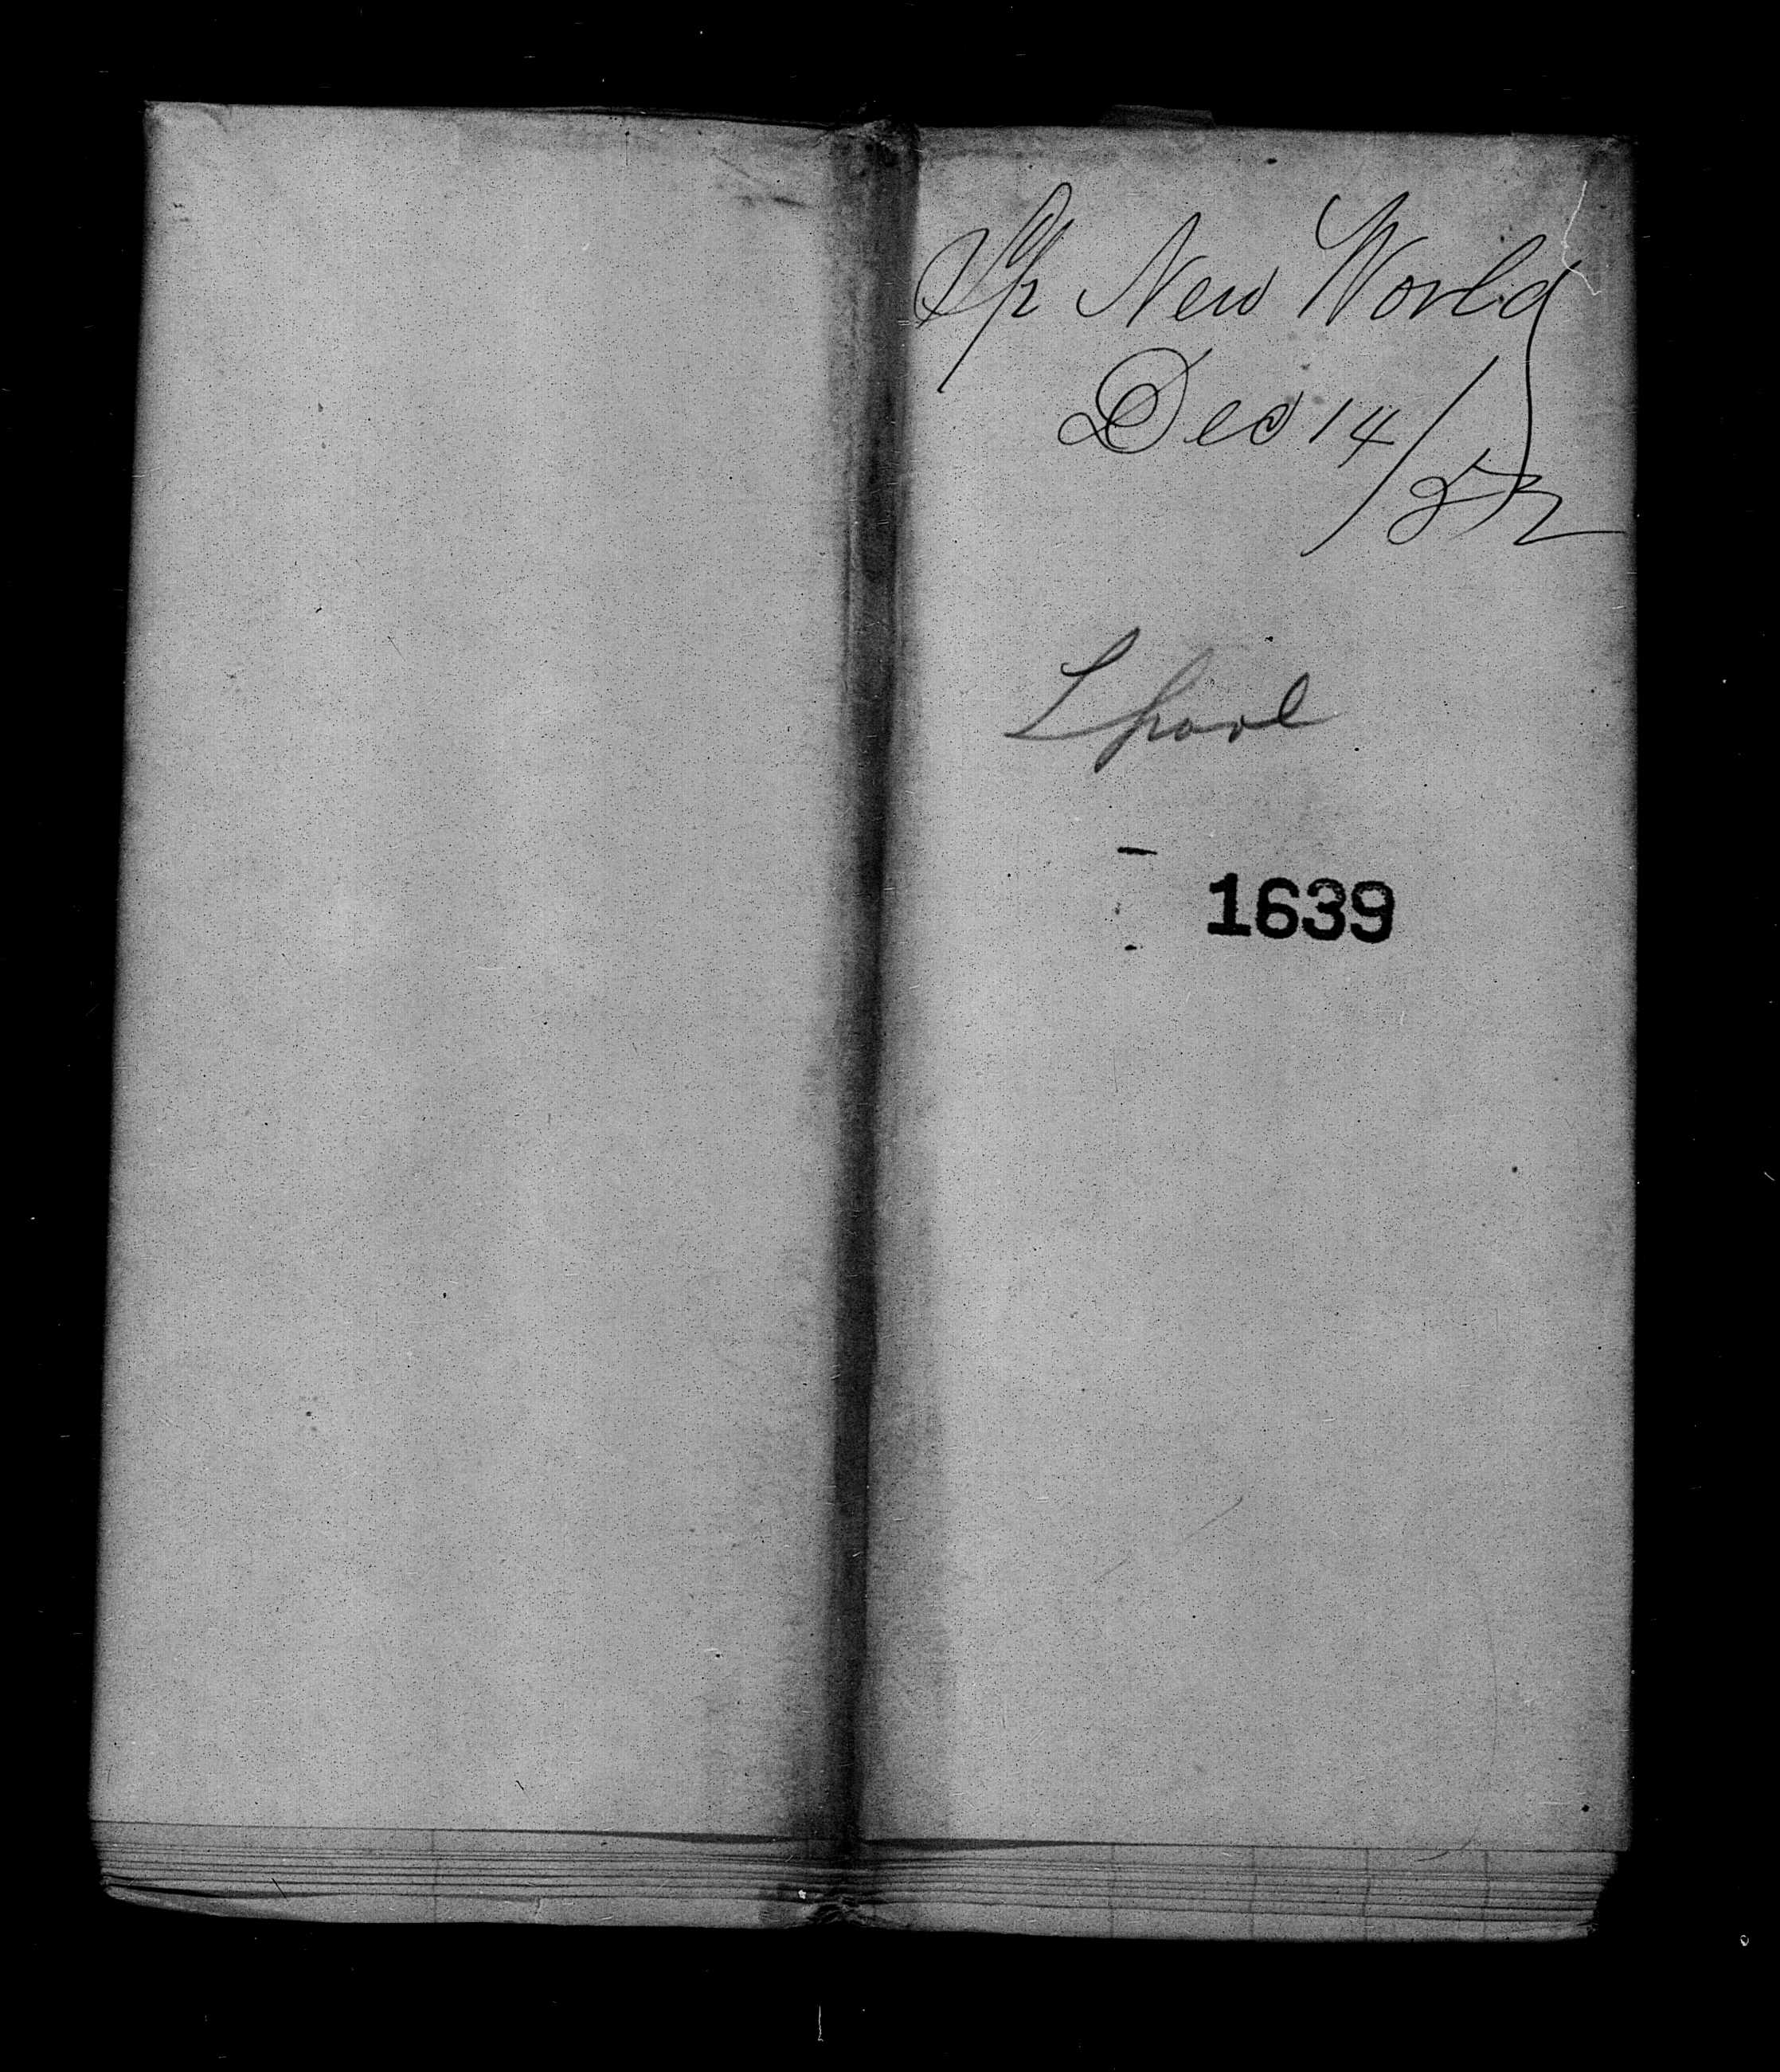 Sh New World
Dec 14/52
Lpool
1639